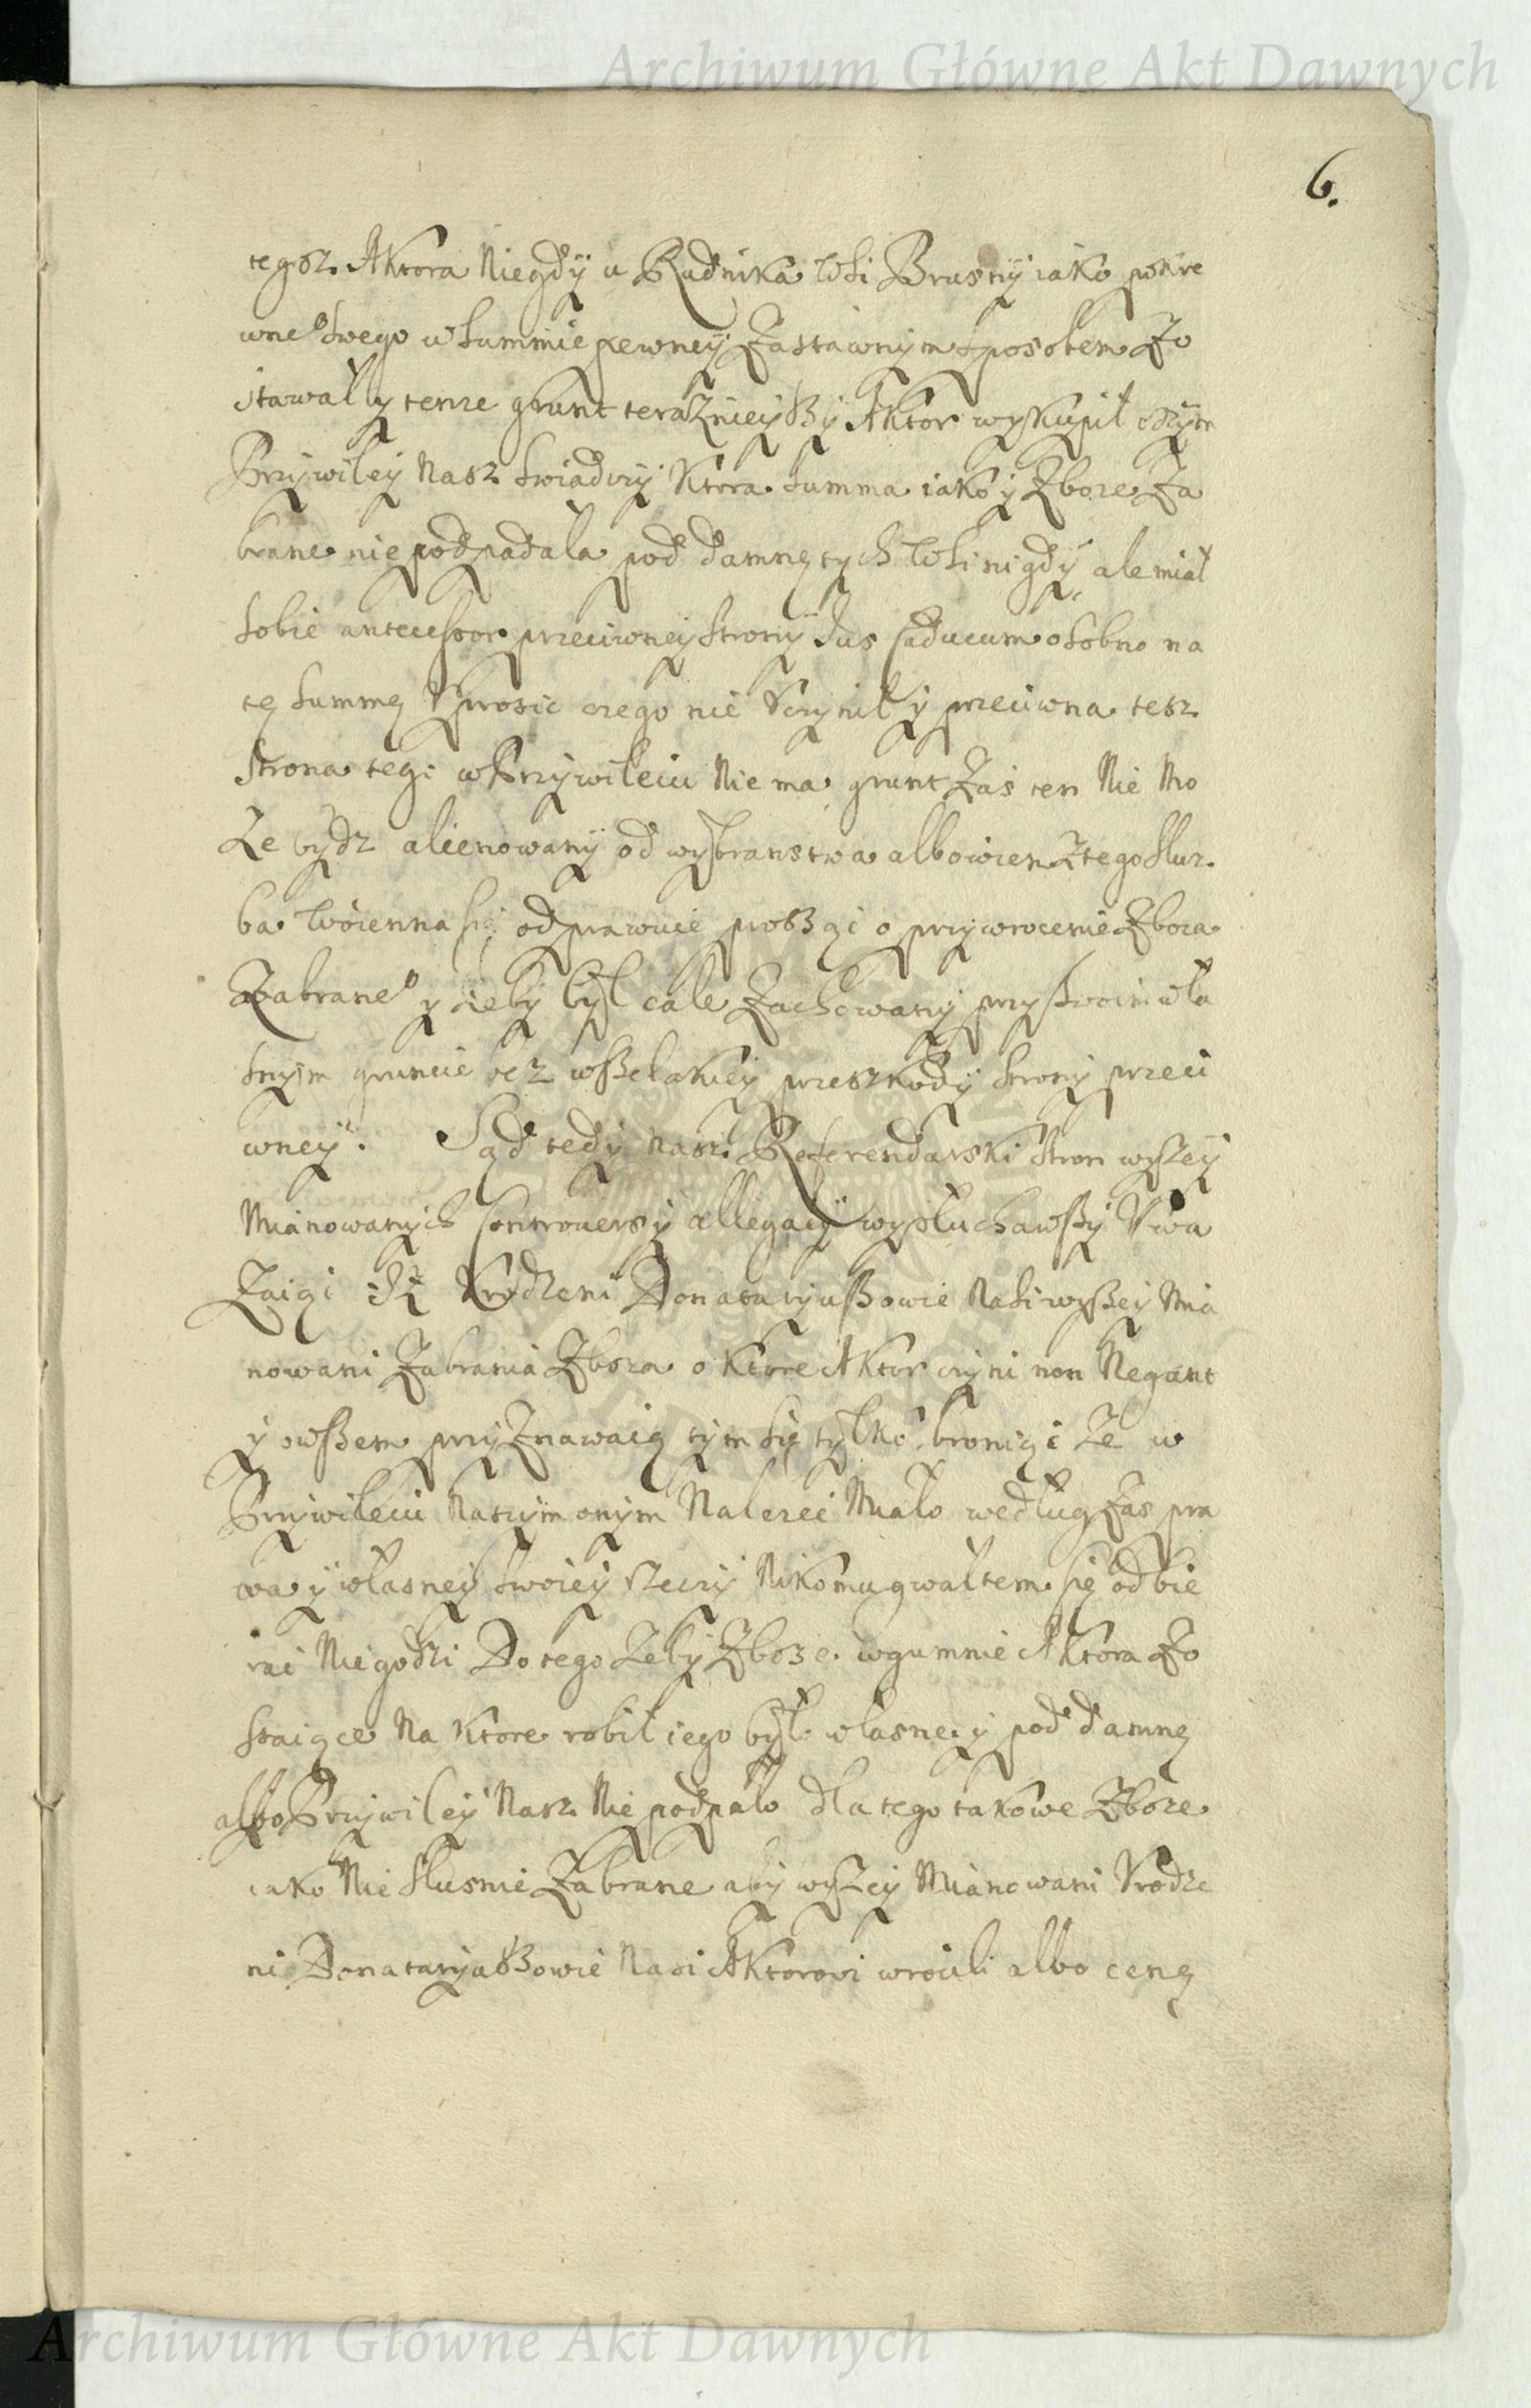 Archiwum Główne Akt Dawnych
6.
tegosz Aktora Niegdy u Rudnika Wsi Brusny iako pokre
wneo swego w summie pewney Zastawnym sposobem Zo
stawal y tenze grunt teraznieyszy Aktor wykupił o czym
Przywiley Nasz swiadczy Ktora summa iako y Zboze Za
brane nie podpadala pod damnę tych Wsi nigdy ale miał
sobie antecessor przeciwney strony Jus Caducum osobno na
tę summę Vprosic czego nie Vczynił y przeciwna tesz
Strona tego w Przywileiu Nie ma grunt Zas ten Nie Mo
Ze bydz alienowany od wybranstwa albowiem Z tego sluz
ba Woienna się odprawuie prosząc o przywrocenie Zboza
Zabraneo y zeby był cale Zachowany przy swoim wła
snym gruncie bez wszelakiey przeszkody strony przeci
wney. Sąd tedy nasz Referendarski stron wyszey
Mianowanych Controwersy allegacy wysłuchawszy Vwa
Zaiąc isz Vrodzeni Donataryuszowie Nasi wyszey Mia
nowani Zabrania Zboza o Ktore Aktor czyni non Negant
y owszem przyznawaią tym się tylko broniąc Ze w
Przywileiu Naszym onym Nalezec Miało według Zas pra
wa y własney swoiey rzeczy Nikomu gwaltem się odbie
rac Niegodzi Do tego Zeby Zboze w gumnie Aktora Zo
staiące Na Ktore robił iego było własne y pod damnę
albo Przywiley Nasz Nie podpało dla tego takowe Zboze
iako Nie slusnie Zabrane aby wyszey Mianowani Vrodze
ni Donataryuszowie Nasi Aktorowi wrocili albo cenę
Archiwum Główne Akt Dawnych